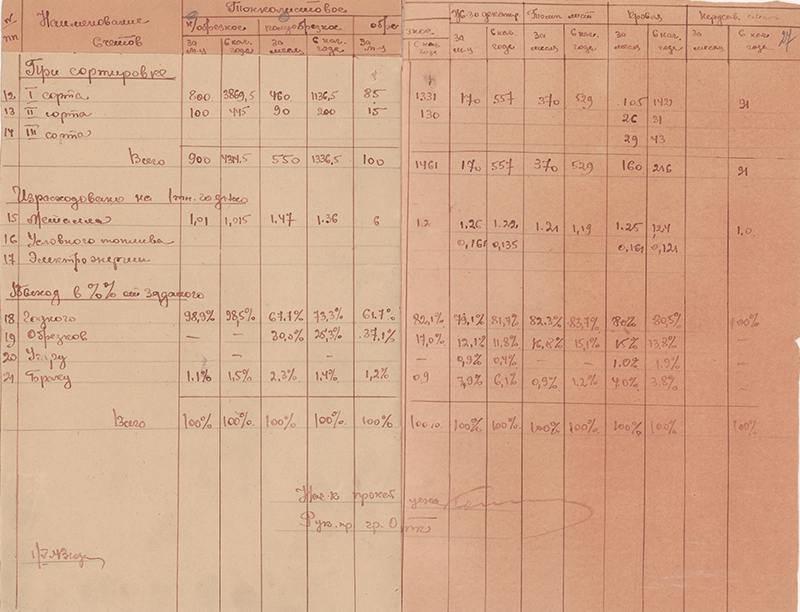 № пп Наименование Счетов Тонколистовое Кровля 27
н/обрезное полуобрезное обре зное
За м-ц С нач. года За месяц С нач. года За м-ц С нач. годе За м-ц С нач. года За месяц С нач. года За месяц С нач. года За месяц С нач. года
При сортировке
12 I сорта 800 3869,5 460 1136,5 85 1331 170 557 370 529 105 142 91
13 II сорта 100 445 90 200 15 130 26 31
14 III сорта 29 43
Всего 900 4314,5 550 1336,5 100 1461 170 557 370 529 160 216 91
Израсходовано на 1 тн. годного
15 Металла 1,01 1,015 1.47 1.36 6 1.2 1.26 1.22 1.21 1,19 1.25 1,0
16 Условного топлива 0,161 0,135 0,161 0,121
17 Электроэнергии
Выход в %% от заданого
18 Годного 98,9% 98,5% 67.7% 73,3% 61.7% 82,1% 79,1% 81,7% 82.3% 83,7% 80% 80,5% 100%
19 Обрезков — — 30,0% 25,3% 37,1% 17,0% 12,1% 11,8% 16,8% 15,1% 15% 13,8%
20 Угару – – — 0,9% 0,4% – – 1.0% 1.9% –
21 Браку 1.1% 1,5% 2,3% 1.4% 1,2% 0,9 7,9% 6,1% 0,9% 1.2% 4.0% 3.8% –
Всего 100% 100% 100% 100% 100% 100% 100% 100% 100% 100% 100% 100% 100%
Нач-к прокат цеха
Рук. пр. гр. О тк